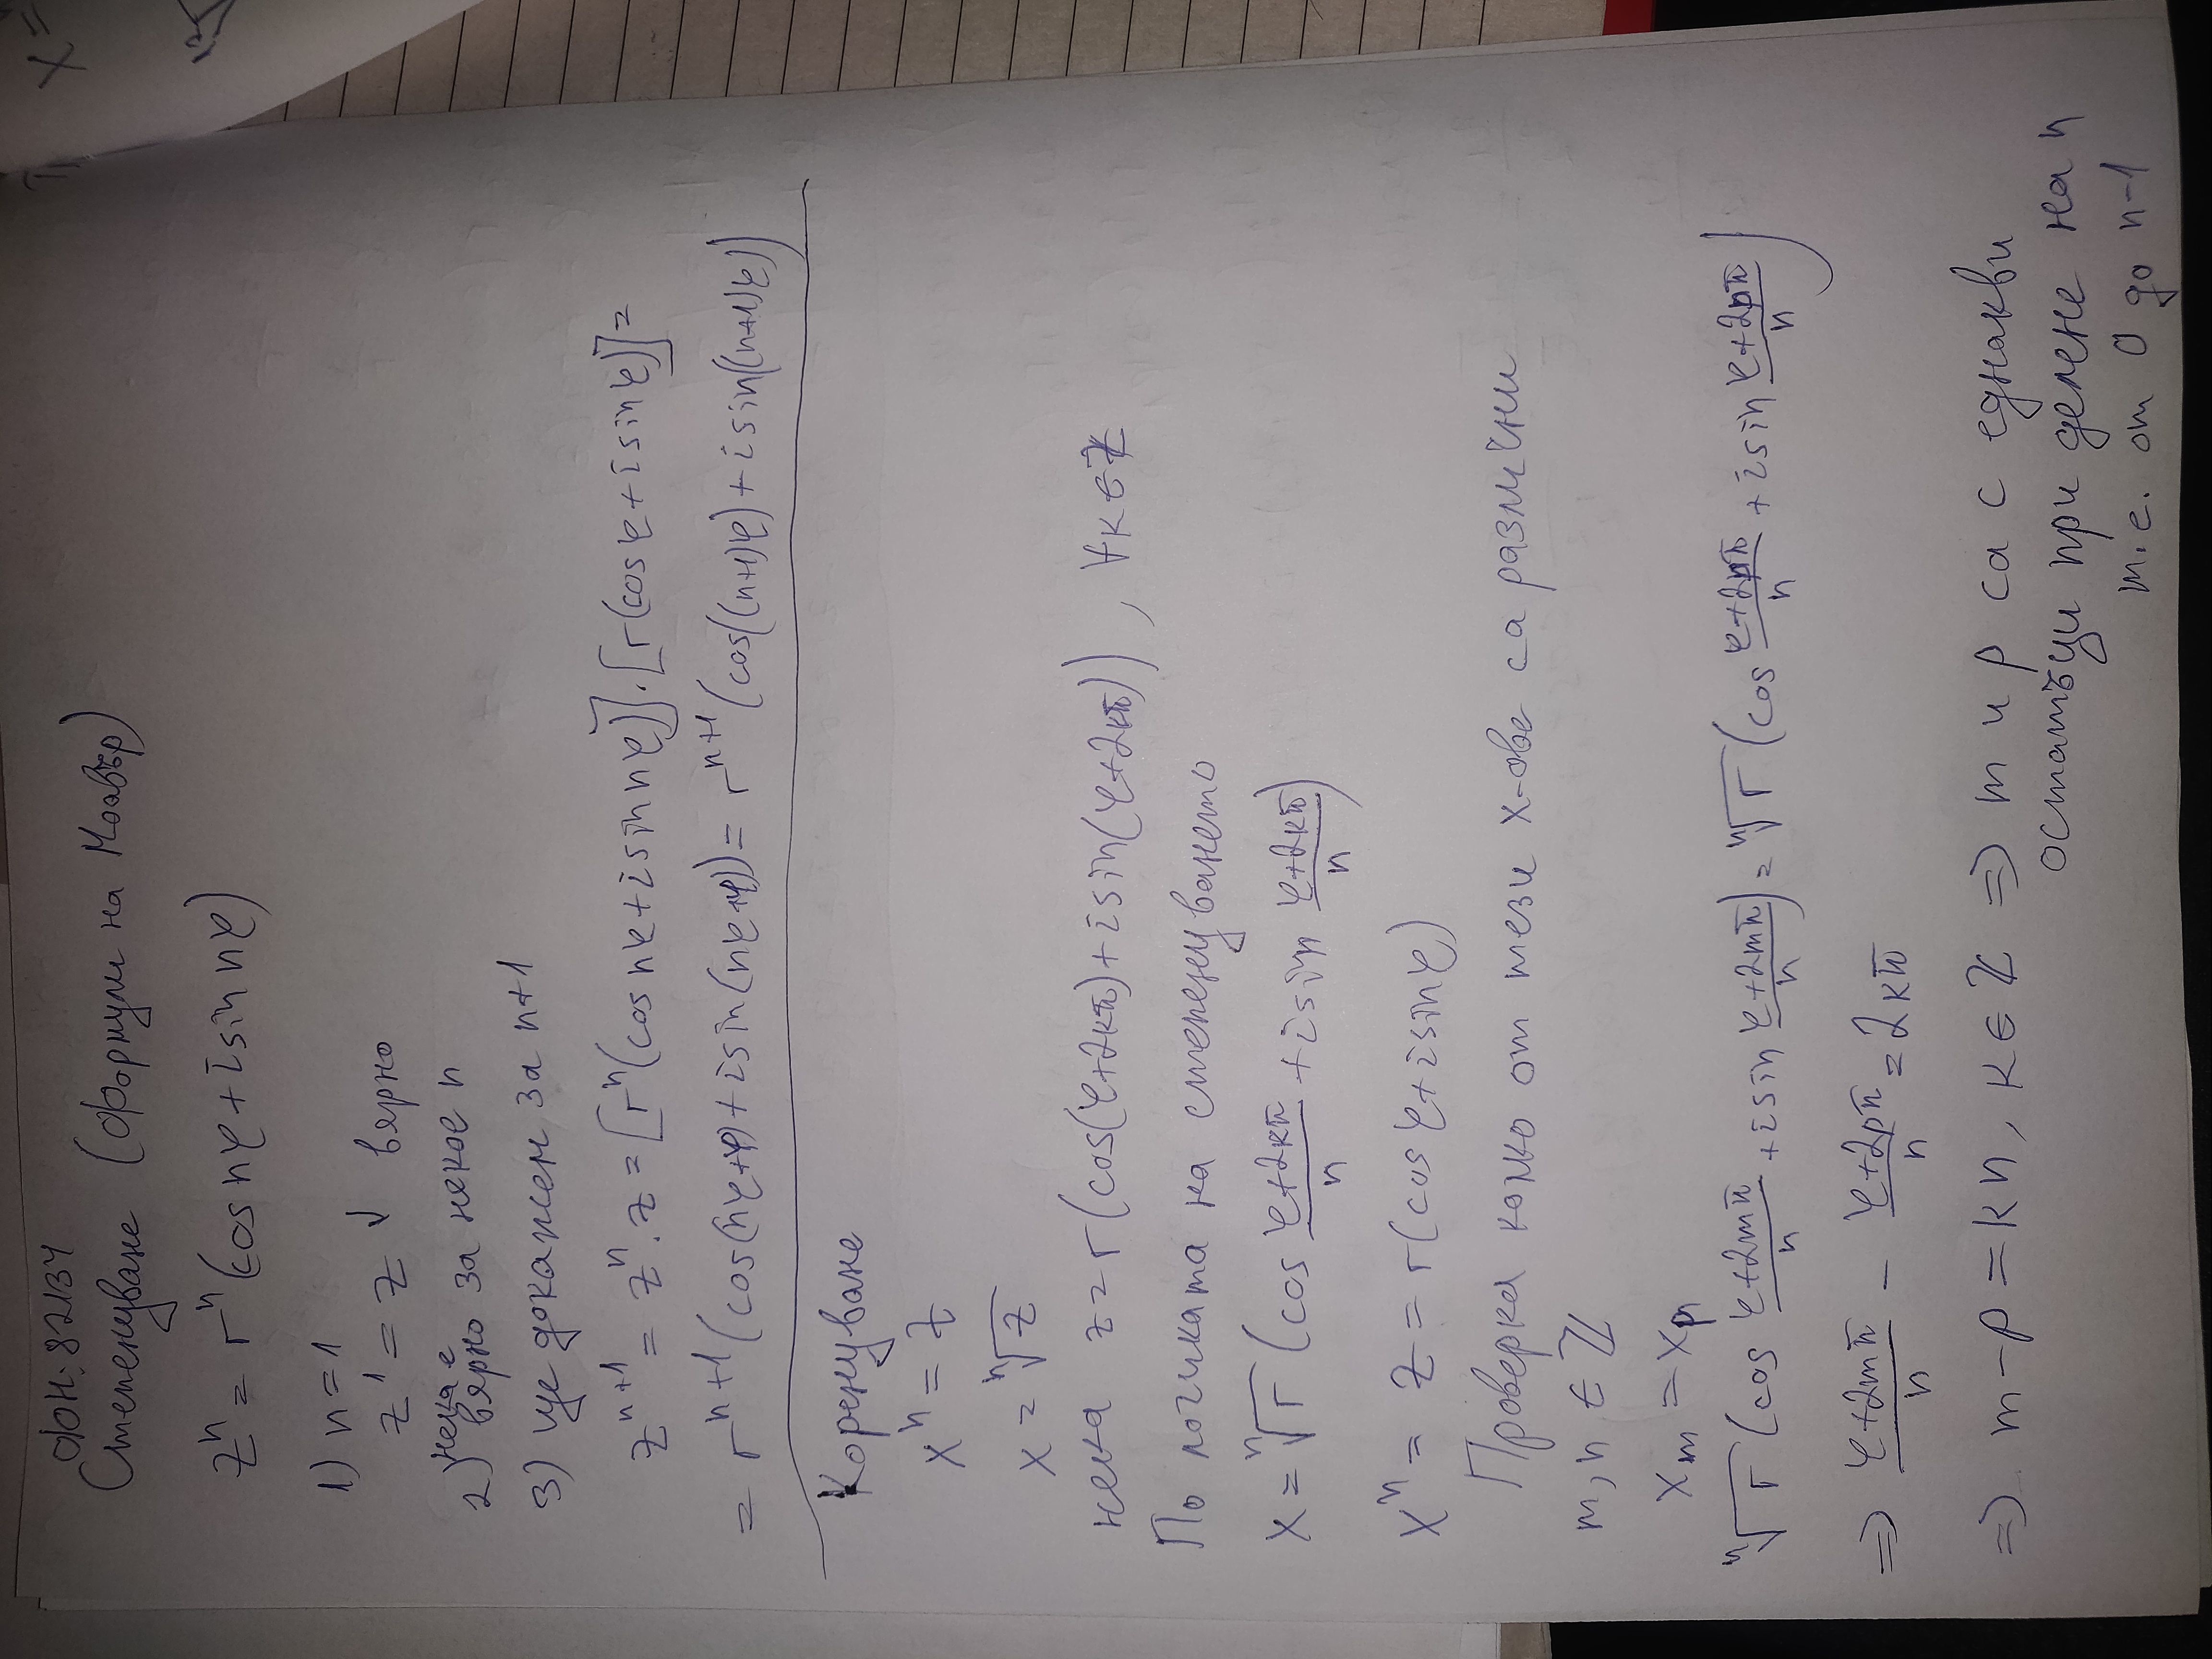 ФН: 82134
Степенуване (Формули на Моавър)
zⁿ = rⁿ(cos nφ + i sin nφ)
1) n = 1
z¹ = z ✓ вярно
2) нека е вярно за некое n
3) ще докажем за n+1
zⁿ⁺¹ = zⁿ . z = [rⁿ(cos nφ + i sin nφ)] . [r(cos φ + i sin φ)] =
= rⁿ⁺¹(cos(nφ+φ) + i sin(nφ+φ)) = rⁿ⁺¹(cos((n+1)φ) + i sin((n+1)φ))
Коренуване
xⁿ = z
x = ⁿ√z
нека z = r(cos(φ+2kπ) + i sin(φ+2kπ)), ∀k ∈ ℤ
По логиката на степенуването
x = ⁿ√r (cos (φ+2kπ)/n + i sin (φ+2kπ)/n)
xⁿ = z = r(cos φ + i sin φ)
Проверка колко от тези x-ове са различни
m, n ∈ ℤ
xₘ = xₚ
ⁿ√r (cos (φ+2mπ)/n + i sin (φ+2mπ)/n) = ⁿ√r (cos (φ+2pπ)/n + i sin (φ+2pπ)/n)
⇒ (φ+2mπ)/n − (φ+2pπ)/n = 2kπ
⇒ m − p = kn, k ∈ ℤ ⇒ m и p са с еднакви
остатъци при делене на n
т.е. от 0 до n−1
x =